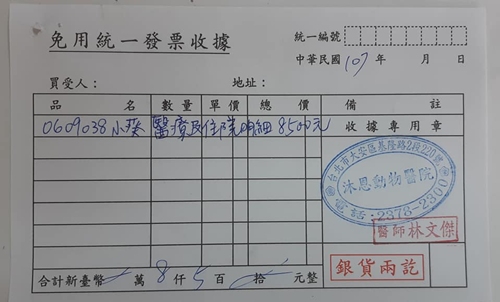 免用統一發票收據
統一編號
中華民國 107 年 月 日
買受人： 地址：
品名 數量 單價 總價 備註
0609038 小葵 醫療及住院明細 8500元 收據專用章
台北市大安區基隆路2段220號
沐恩動物醫院
電話：2378-2300
醫師林文傑
銀貨兩訖
合計新臺幣 萬 8 仟 5 百 拾 元整